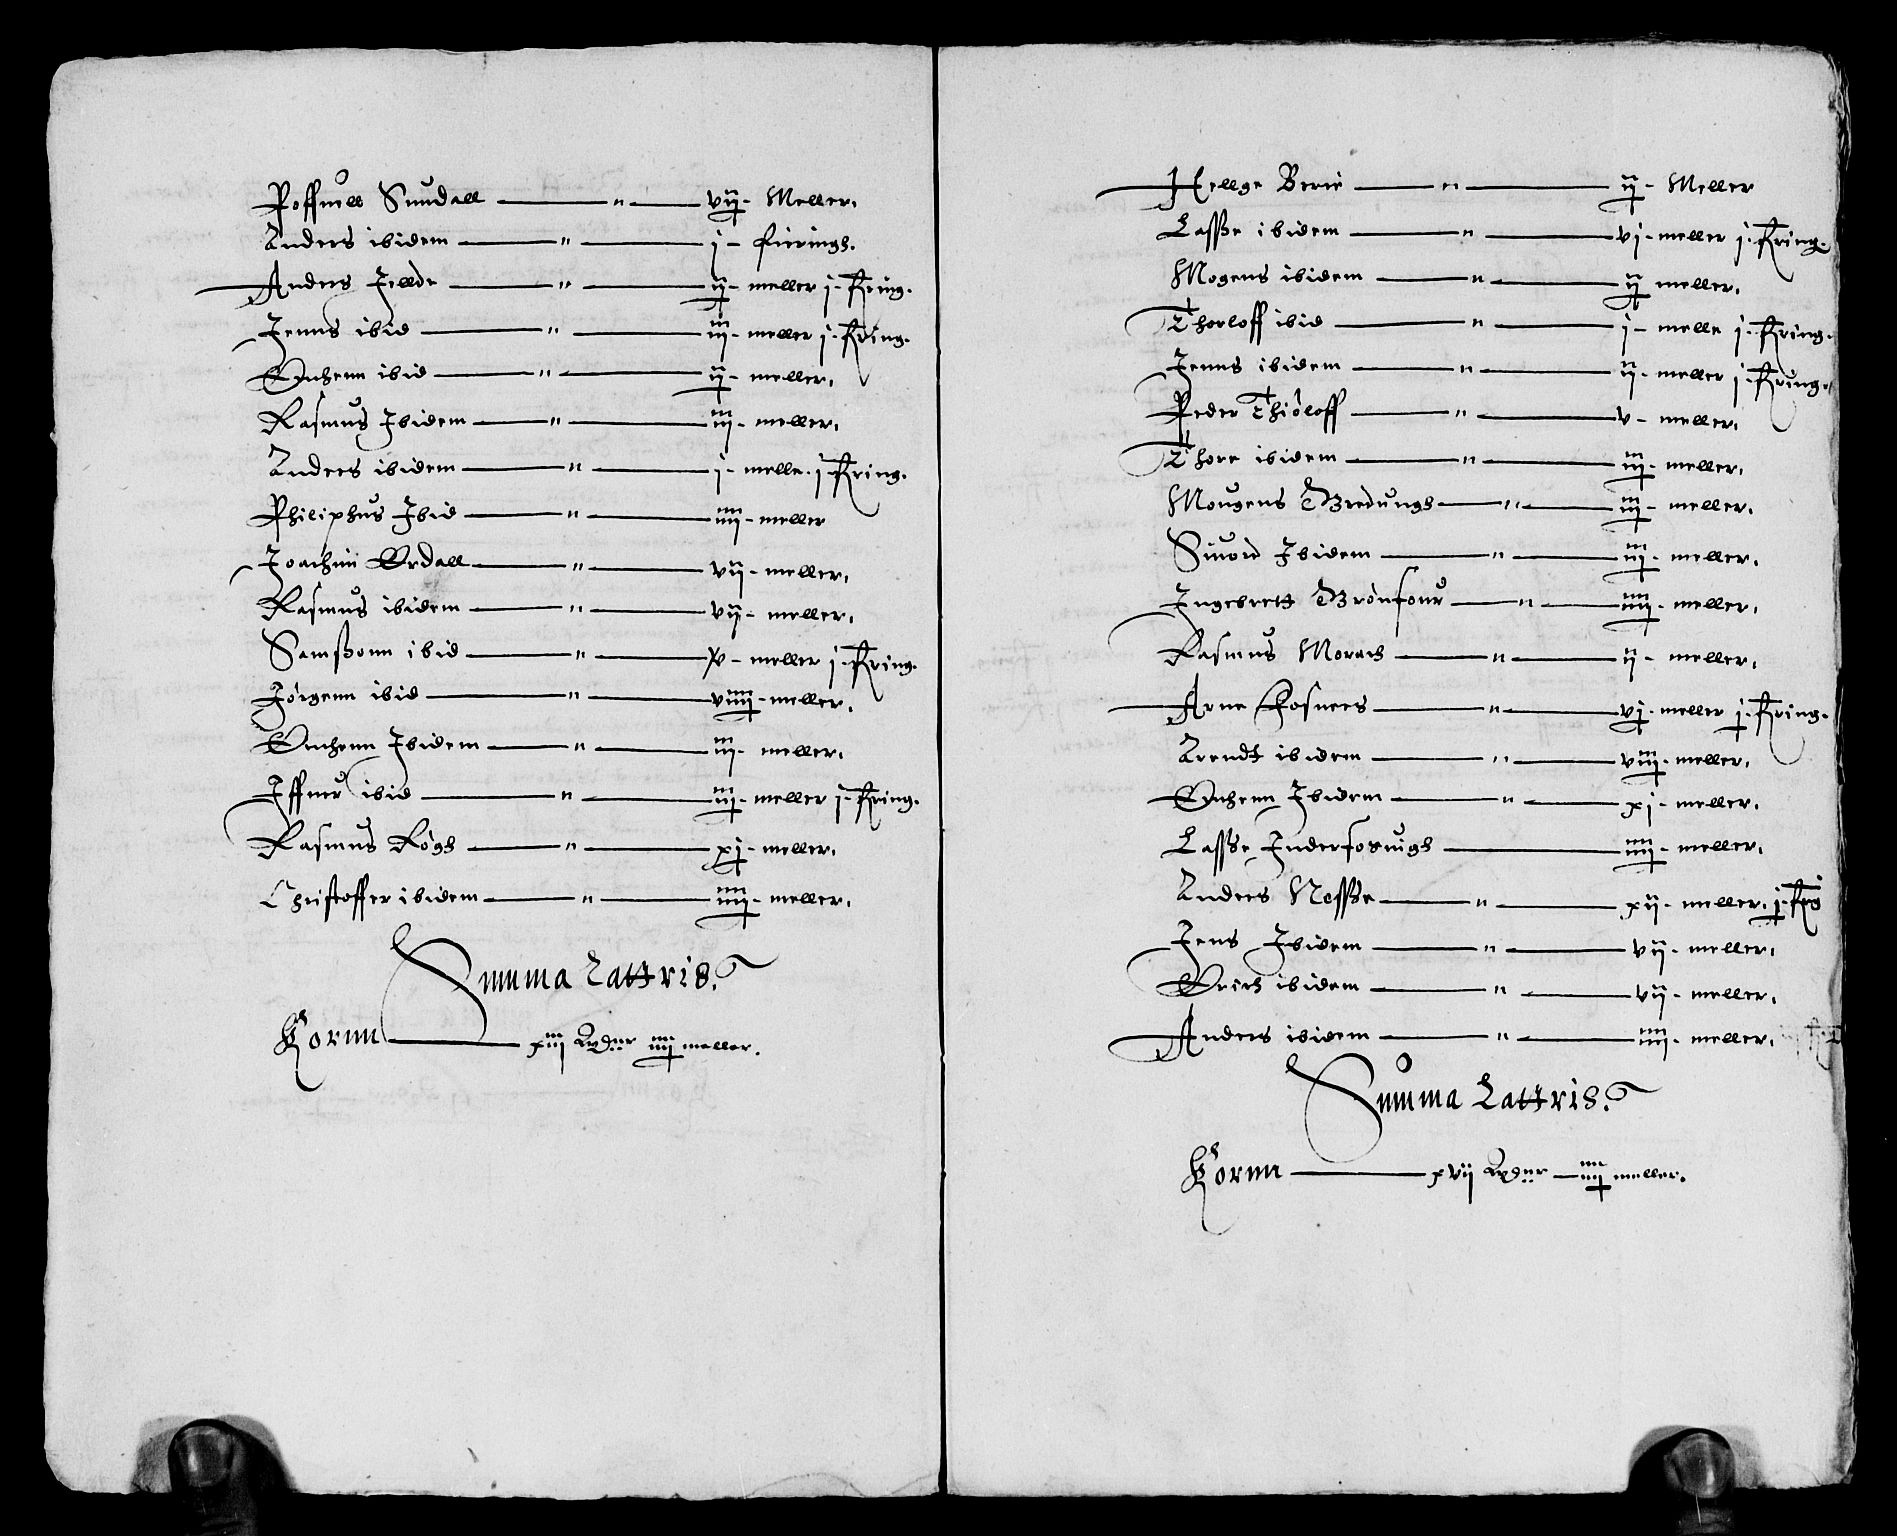 Poffuell Sundall — " — vij - Meller.
Anders ibidem — " — j - fierings.
Anders Jellde — " — ij - meller j - fring.
Jenns ibid — " — iij - meller j - fring.
Onhenn ibid — " — ij - meller.
Rasmus Ibidem — " — iij - meller.
Anders ibidem — " — j - melle. j - fring.
Philiphus Ibid — " — iiij - meller
Joachim Ordall — " — vij - meller.
Rasmus ibidem — " — vij - meller.
Samßonn ibid — " — v - meller j - fring.
Jørgenn ibid — " — viiij - meller.
Onhenn Ibidem — " — iij - meller.
Iffuer ibid — " — iij - meller j - fring.
Rasmus Røgh — " — xj - meller.
Christoffer ibidem — " — iiij - meller.
Summa Lattris.
Kornn — xiiij iiij meller.
Hellge Berie — " — ij - Meller
Laßße ibidem — " — vj - meller j - fring.
Mogens ibidem — " — ij meller.
Thorloff ibid — " — j - melle j - fring.
Jenns ibidem — " — ij - meller j - fring.
Peder Thioloff — " — v - meller.
Thore ibidem — " — iij - meller.
Mougens Bredungh — " — iij - meller.
Siuord Ibidem — " — iij - meller.
Ingebrett Brønfour — " — iiij - meller.
Rasmus Morach — " — ij - meller.
Arne Fosnees — " — vj - meller j - fring.
Arendt ibidem — " — viij - meller.
Onhenn Ibidem — " — xj - meller.
Laßße Inderforuigh — iiij - meller.
Anders Neßße — " — xij - meller. j - frg
Jens Ibidem — " — vij - meller.
Erich ibidem — " — vij - meller.
Anders ibidem — " — iiij - meller.
Summa Lattris.
Kornn — xvij — iiij meller.